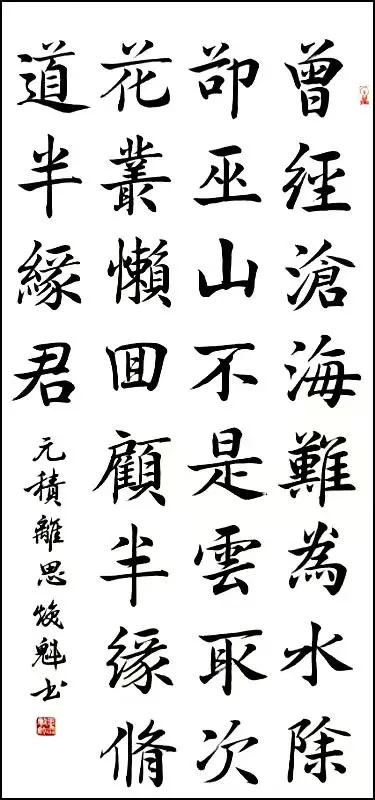 曾經滄海難為水除
却巫山不是雲取次
花叢懶囬顧半緣脩
道半緣君
元積離思焕魁书